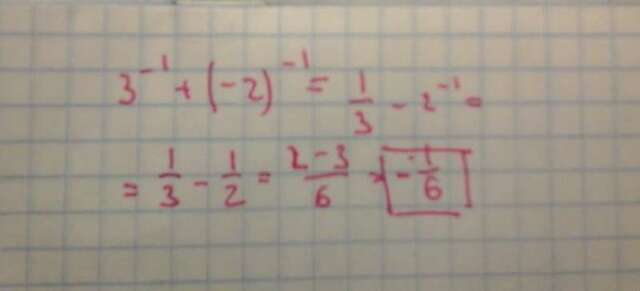 3⁻¹ + (-2)⁻¹ = 1/3 - 2⁻¹ =
= 1/3 - 1/2 = (2-3)/6 = -1/6